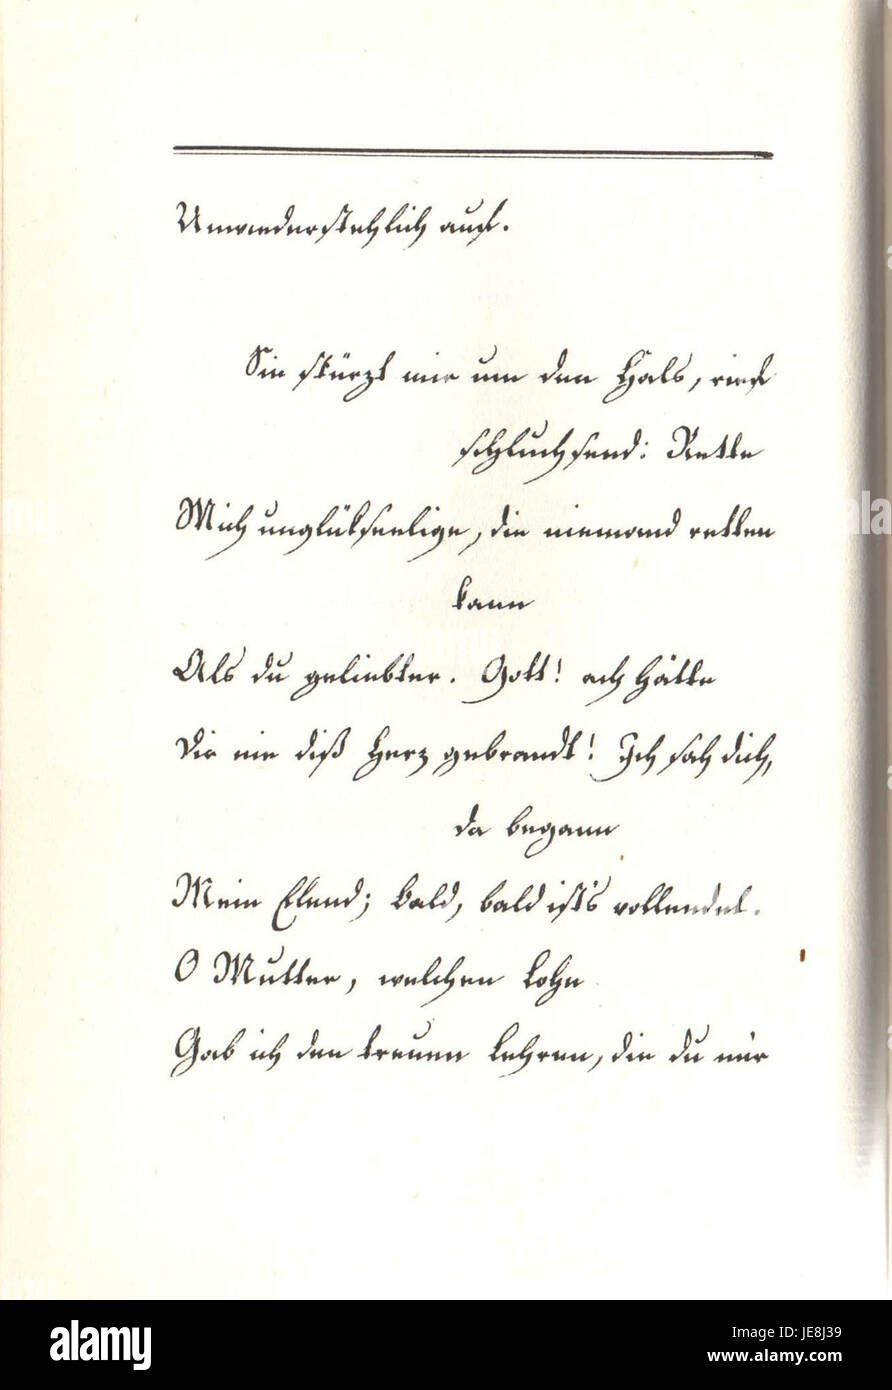 Unwiederstehlich auf.
Sie stürzt mir um den Hals, rief
schluchsend: Rette
Mich unglükseelige, die niemand retten
kann
Als du geliebter. Gott! ach hätte
Dir nie diß Herz gebrandt! Ich sah dich,
da begann
Mein Elend; bald, bald ist's vollendet.
O Mutter, welchen Lohn
Gab ich den treuen Lehren, die du mir
alamy
Image ID: JE8J39
www.alamy.com